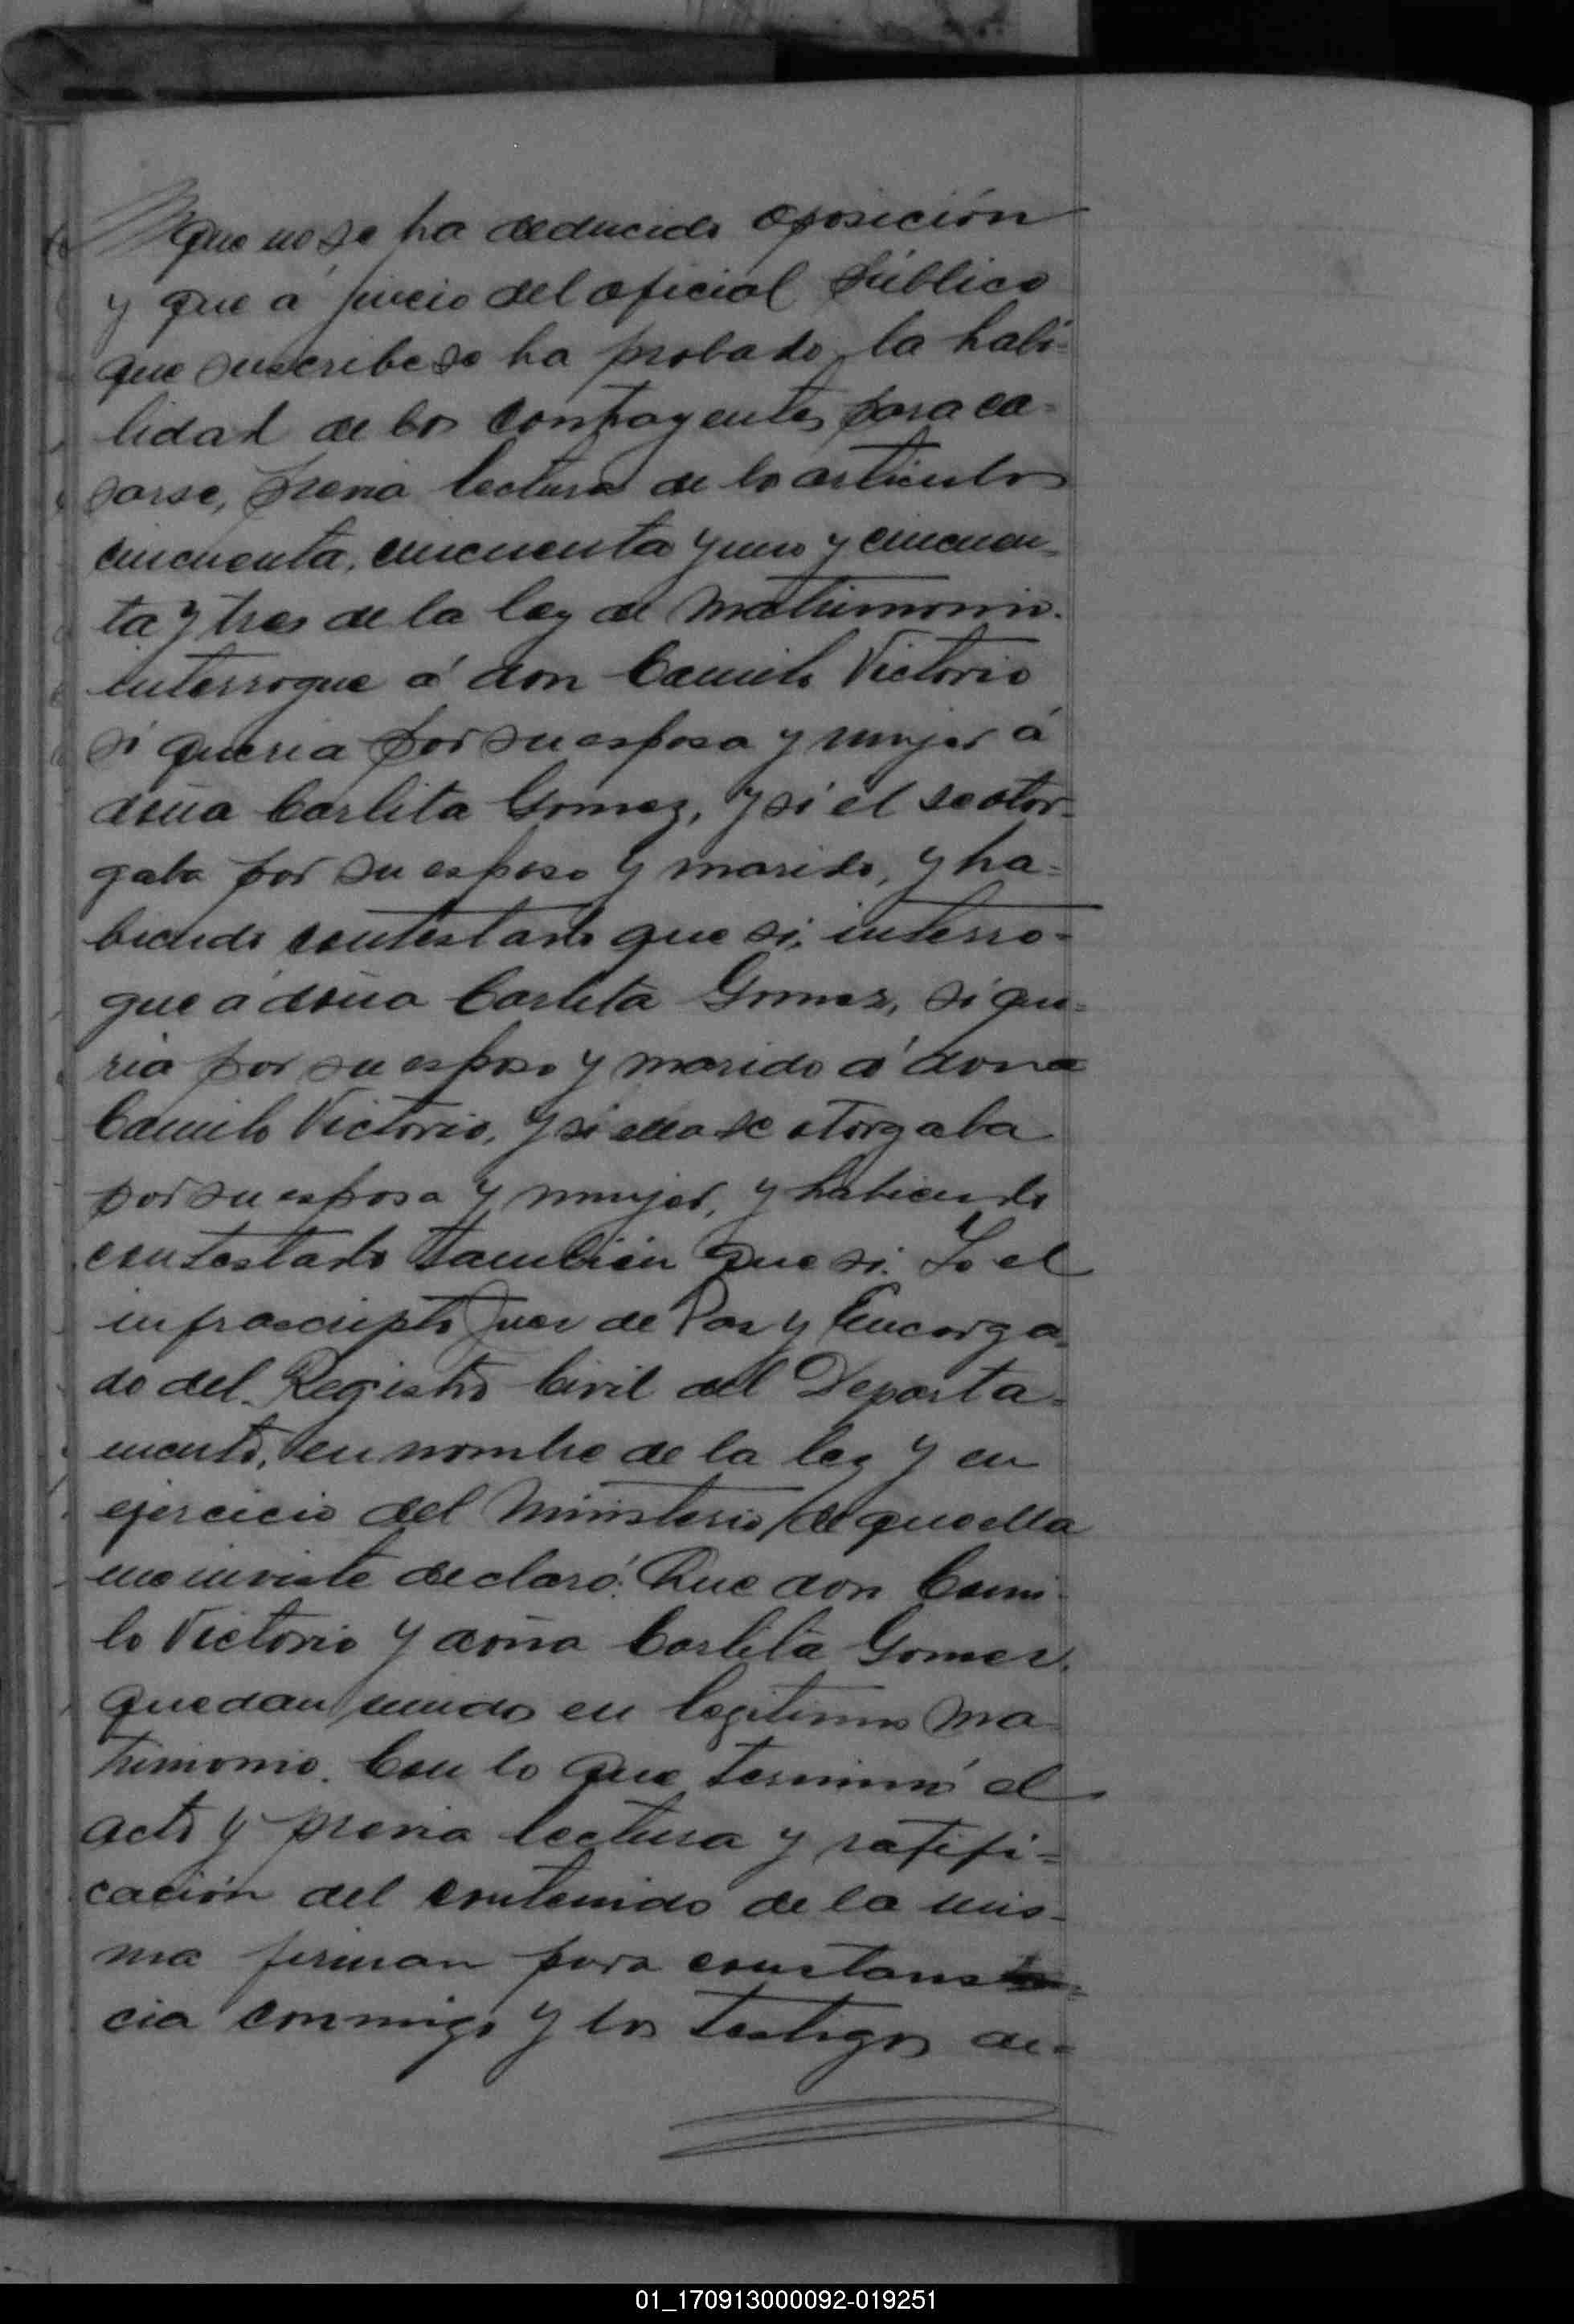 que no se ha deducido oposición
y que á juicio del oficial público
que suscribe se ha probado la habi-
lidad de los contrayentes para ca-
sarse, previa lectura de lo articulos
cincuenta, cincuenta y uno y cincuen-
ta y tres de la ley de Matrimonio.
interrogue á don Camilo Victorio
si queria por su esposa y mujer á
doña Carlita Gomez, y si él se otor-
gaba por su esposo y marido, y ha-
biendo contestado que si, interro-
gue á doña Carlita Gomez, si que-
ria por su esposo y marido á dona
Camilo Victorio, y si ella se otorgaba
por su esposa y mujer, y habiendo
contestado tambien que si. Yo el
infrascripto Juez de Paz y Encarga-
do del Registro Civil del Departa-
mento, en nombre de la ley y en
ejercicio del Ministerio de que ella
me inviste declaró: Que don Cami-
lo Victorio y doña Carlita Gomez.
quedan unidos en legitimo Ma-
trimonio. Con lo que terminó el
acto y previa lectura y ratifi-
cación del contenido de la mis-
ma firman para constans
cia conmigo y los testigos de-
01_170913000092-019251